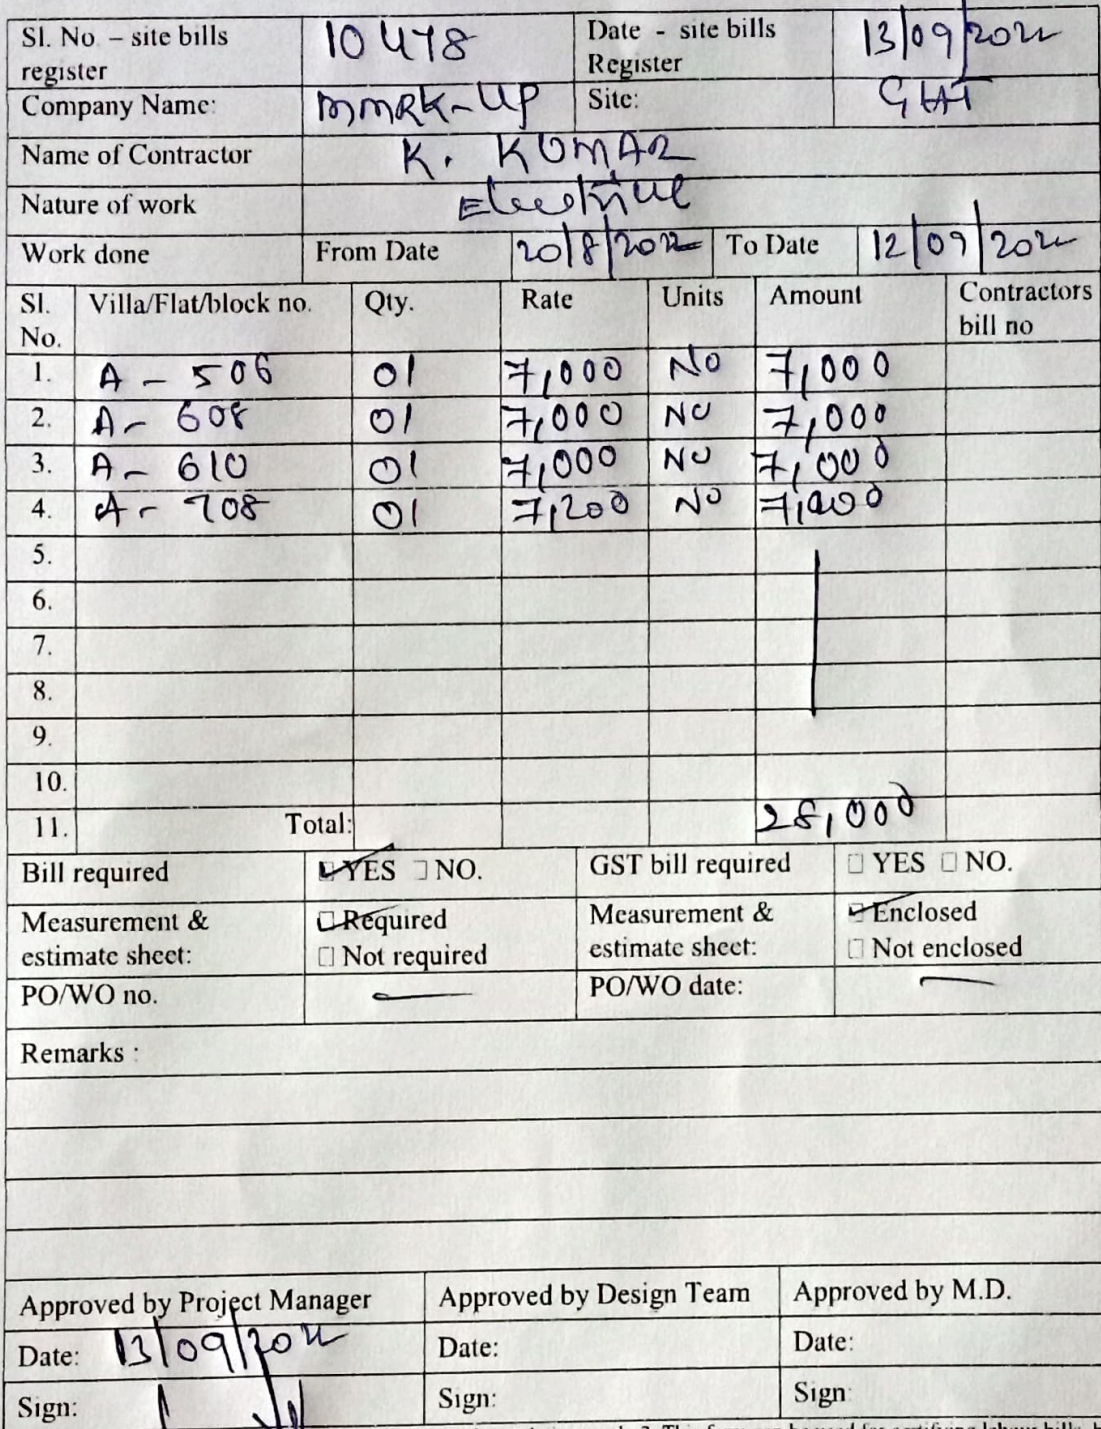 Sl. No – site bills register 10478 Date - site bills Register 13/09/2022
Company Name: MMRK-UP Site: GHT
Name of Contractor K. KUMAR
Nature of work Electrical
Work done From Date 20/8/2022 To Date 12/09/2022
Sl. No. Villa/Flat/block no. Qty. Rate Units Amount Contractors bill no
1. A - 506 01 7,000 No 7,000
2. A - 608 01 7,000 No 7,000
3. A - 610 01 7,000 No 7,000
4. A - 708 01 7,200 No
5.
6.
7.
8.
9.
10.
11. Total: 28,000
Bill required YES NO. GST bill required YES NO.
Measurement & estimate sheet: Required Not required Measurement & estimate sheet: Enclosed Not enclosed
PO/WO no. — PO/WO date: —
Remarks :
Approved by Project Manager Approved by Design Team Approved by M.D.
Date: 13/09/2022 Date: Date:
Sign: Sign: Sign: